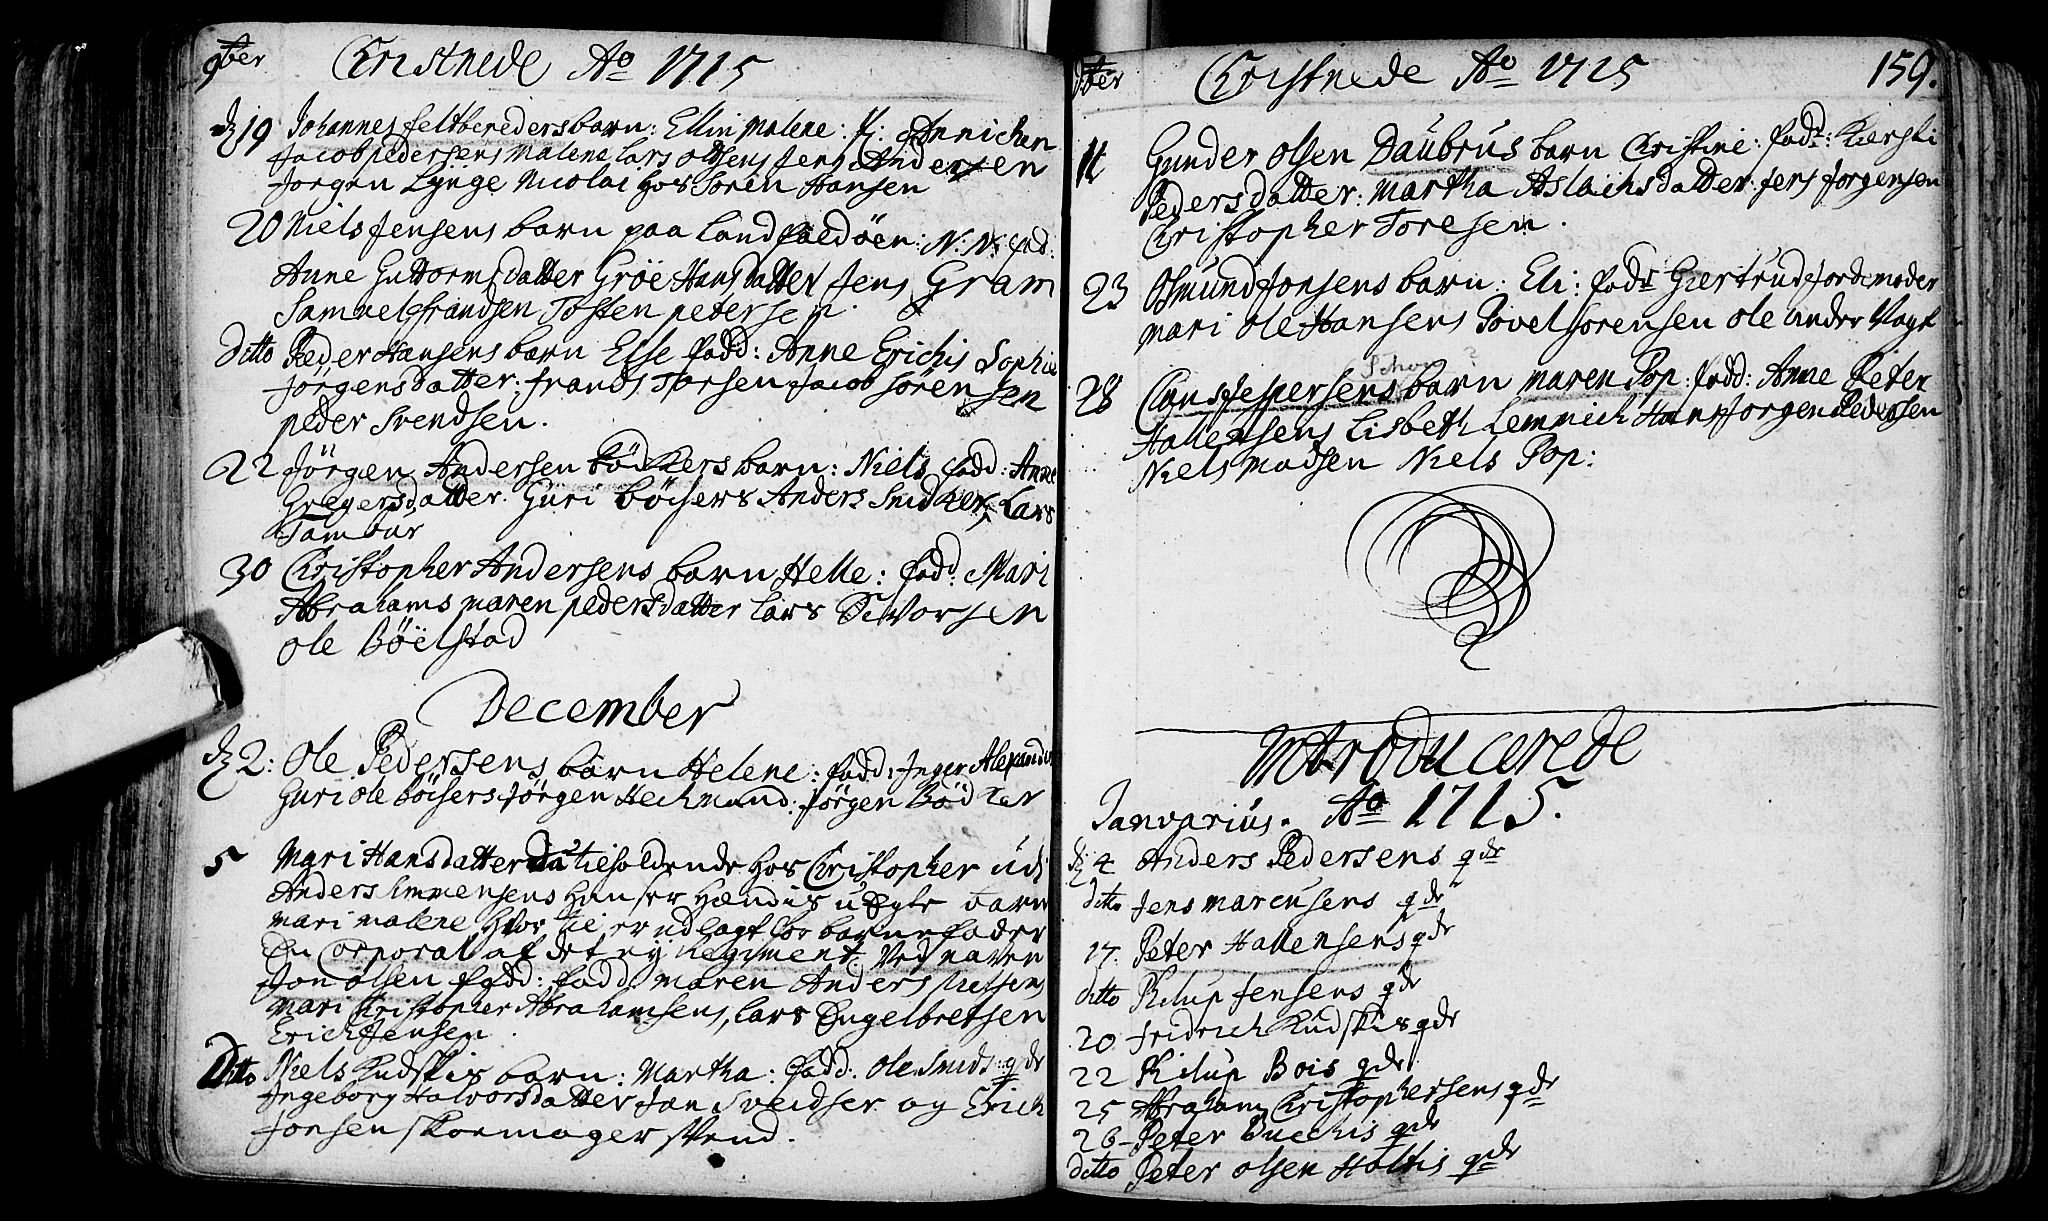 9ber Christnede Ao 1715
d 19 Johannes feltberedersbarn: Ellin Malene: f: Annichen
Jacob pedersens Malene Lars Olsens Jens Andersen
Jorgen Lynge Nicolai hos Soren Hansen
20 Niels Jensens barn paa Landfaldöen: N: N: fad:
Anne Guttormsdatter Gröe Hansdatter Jens Gram
Samuel frandsen Tosten petersen.
Ditto Peder Hansens barn Else fadd: Anne Erichis Sophie
Jörgensdatter: frands Jacob sörensen
peder Svendsen.
22 Jörgen Andersen Bödkers barn: Niels fadd: Anne
Gregersdatter. Guri Böisers Anders Snidker, Lars
Tambur
30 Christopher Andersens barn Helle: fadd: Mari
Abrahams maren pedersdatter Lars Sivorsen
Ole Böelstad
December
d 2: Ole Pedersens barn Helene: fadd: Inger Alexanders
Guri Ole Böisers Jörgen Heckmand: Jörgen Bödker
5 Mari Hansdatter tieholdende hos Christopher udi
Anders Emmensens Huus er Hændis uægte barn
mari malene hvor tie er udlagt for barnefader
En Corporal af det ny Regiment. Ved naven
Jon olsen fadd: fadd maren Anders Nielsens
Mari Christopher Abrahamsens, Lars Engelbretsen
Erich Jensen.
Ditto Niels Kudskis barn: Martha: fadd: Ole Smids: qde
Ingeborg Halvorsdatter Jan Sveidser og Erich
Jonsen skoemager svend.
Xber Christnede Ao 1715 159.
11 Gunder Olsen Daubrus barn Christine: fadr: Kiersti
Pedersdatter: Martha Aslachsdatter: Jens Jorgensen
Christopher Toresen.
23 Osmund Jonsens barn: Eli: fadr Giertrud Jordemoder
mari Ole Hansens Povel sorensen Ole under Vagt
28 Claus Jespersens barn maren Pop: fadd: Anne Peter
Hallensens Lisbeth Lemmich Hans Jorgen Pedersen
Niels Madsen Niels Pop:
Introducerede
Janvarius. Ao 1715.
d 4 Anders Pedersens qde
ditto Jens marcusens qde
17. Peter Hallensens qde
ditto Philup Jensens qde
20 fridrich Kudskis qde
22 Philup Bois qde
25 Abraham Christophersens qde
26 Peter Buechis qde
ditto Peter Olsen Holtis qde